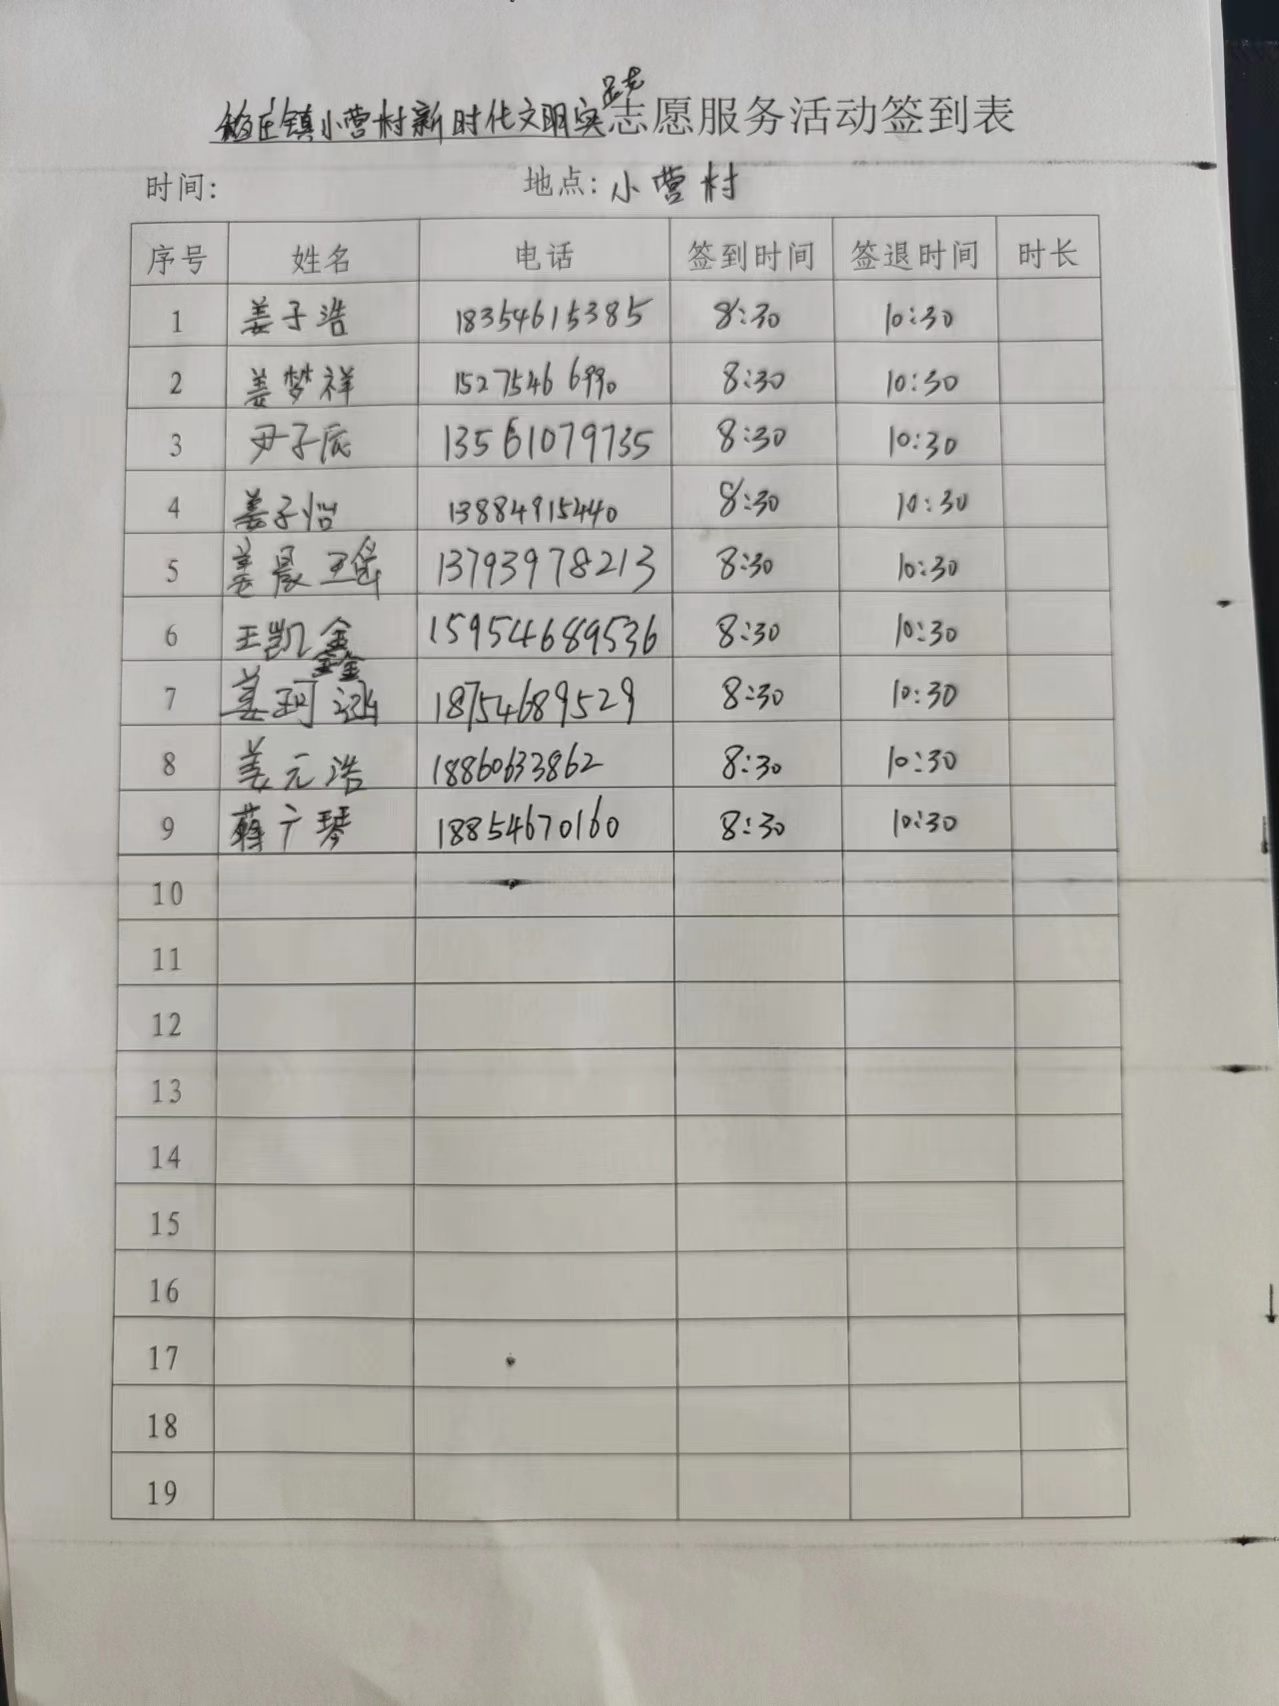 稻庄镇小营村新时代文明实践志愿服务活动签到表
时间: 地点: 小营村
序号 姓名 电话 签到时间 签退时间 时长
1 姜子浩 18354615385 8:30 10:30
2 姜梦祥 15275466990 8:30 10:30
3 尹子辰 13561079735 8:30 10:30
4 姜子怡 13884915440 8:30 10:30
5 姜晨瑶 13793978213 8:30 10:30
6 王凯鑫 15954689536 8:30 10:30
7 姜珂涵 18754689529 8:30 10:30
8 姜元浩 18860633862 8:30 10:30
9 蒋广琴 18854670160 8:30 10:30
10
11
12
13
14
15
16
17
18
19